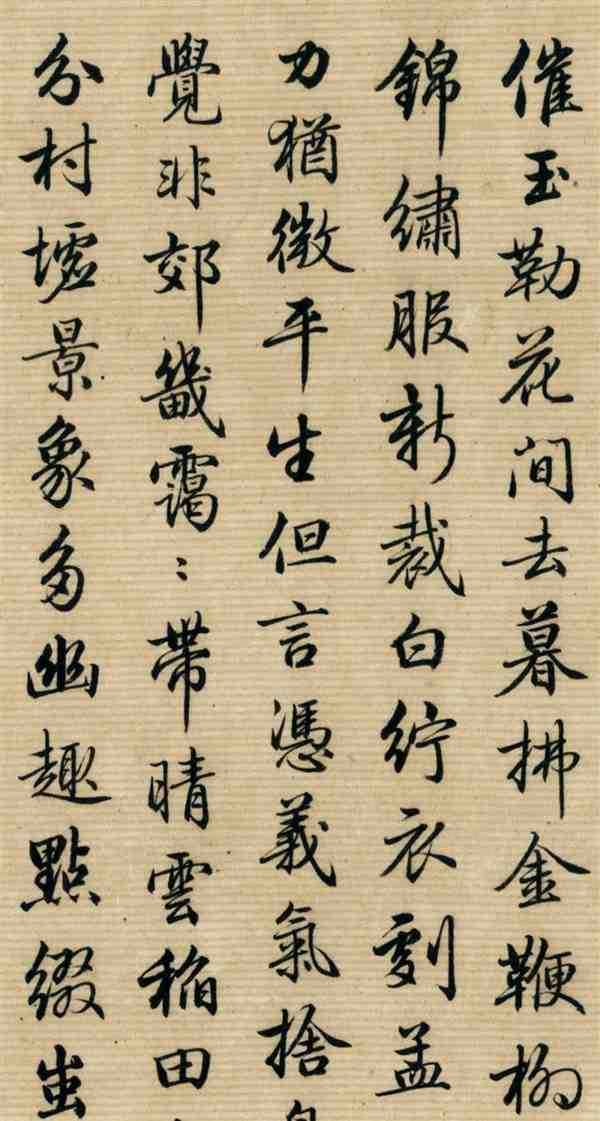 催玉勒花間去暮拂金鞭柳
錦繡服新裁白紵衣劇孟
力猶微平生但言憑義氣捨
覺非郊畿靄：帶晴雲稻田
分村墟景象多幽趣點綴